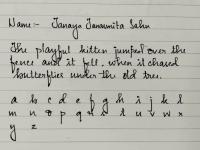 Name:- Tanaya Tanumita Sahu
The playful kitten jumped over the
fence and it fell, when it chased
butterflies under the old tree.
a b c d e f g h i j k l
m n o p q r s t u v w x
y z